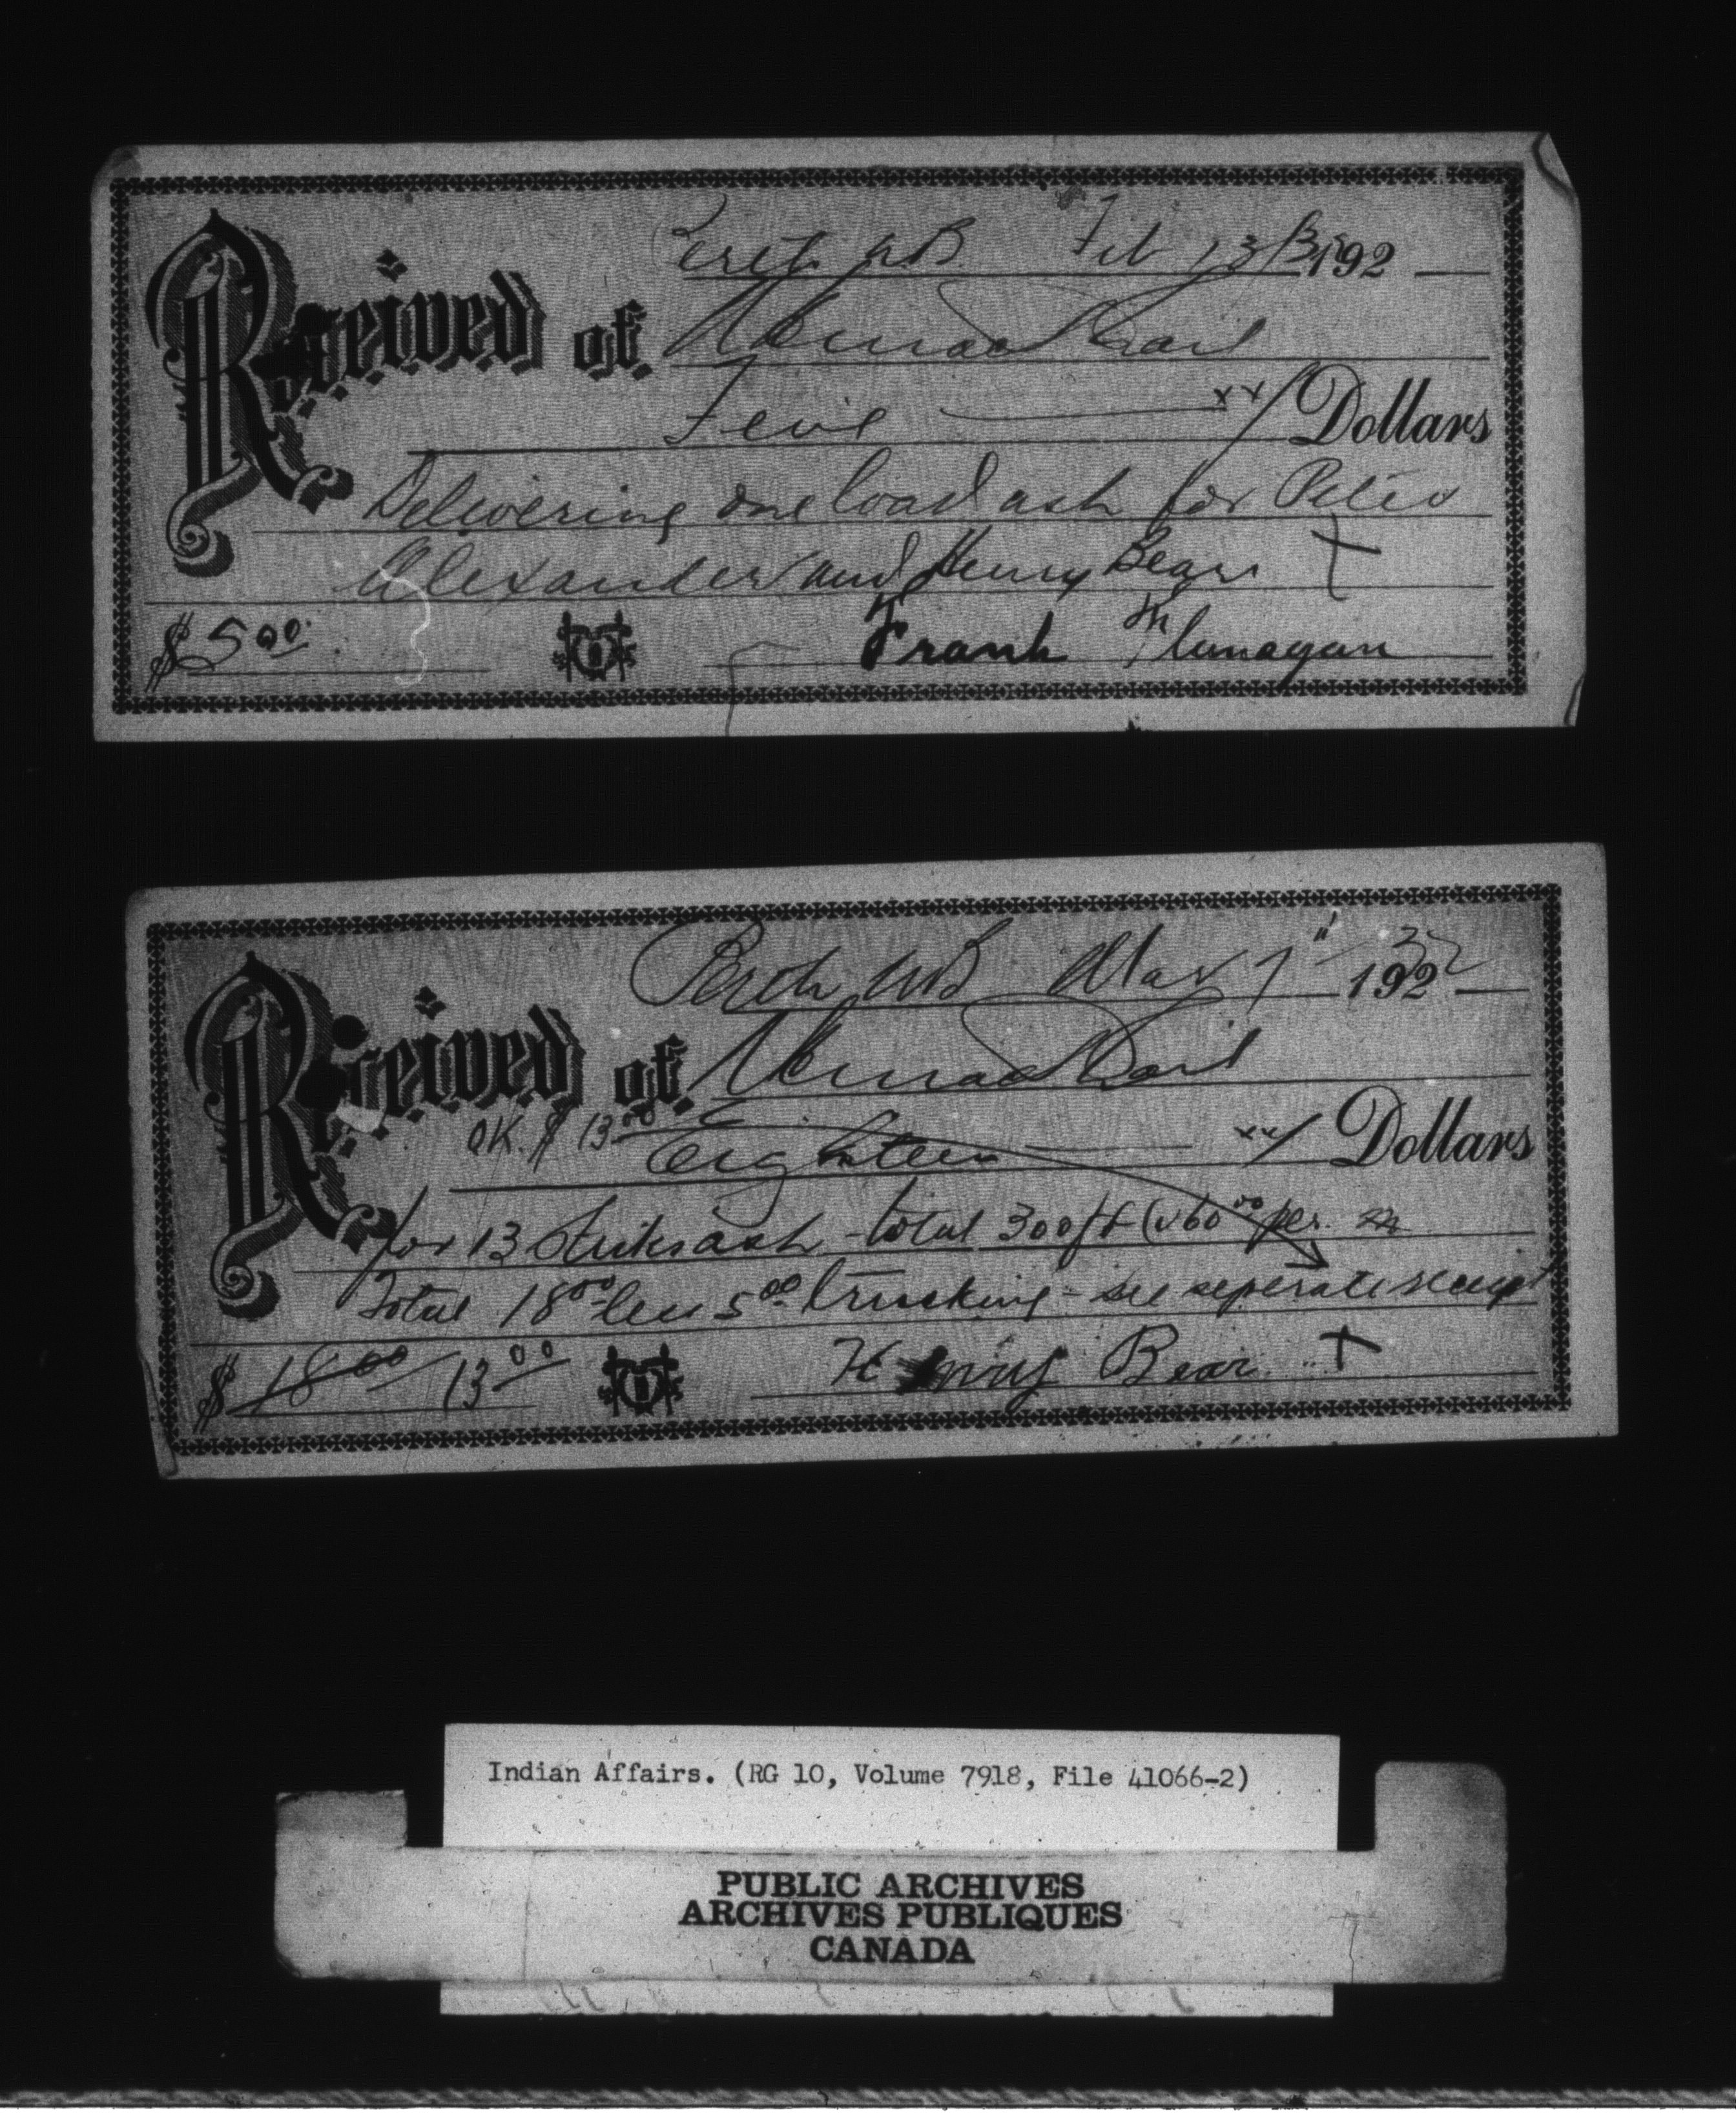 Perth N.B. Feb 13 192
Received of
Five xx/ Dollars
Delivering one load ash for Peter
Alexander and Henry Bear X
$ 5.00 Frank Flannagan
Perth N.B. Mar 1" 1932
Received of
OK. $ 13.00
Eighteen xx/ Dollars
for 13 Sticks ash - total 300 ft @ 60.00 per M
Total 18.00 less 5.00 trucking - see seperate receipt
$ 18.00 13.00 Henry Bear X
Indian Affairs. (RG 10, Volume 7918, File 41066-2)
PUBLIC ARCHIVES
ARCHIVES PUBLIQUES
CANADA